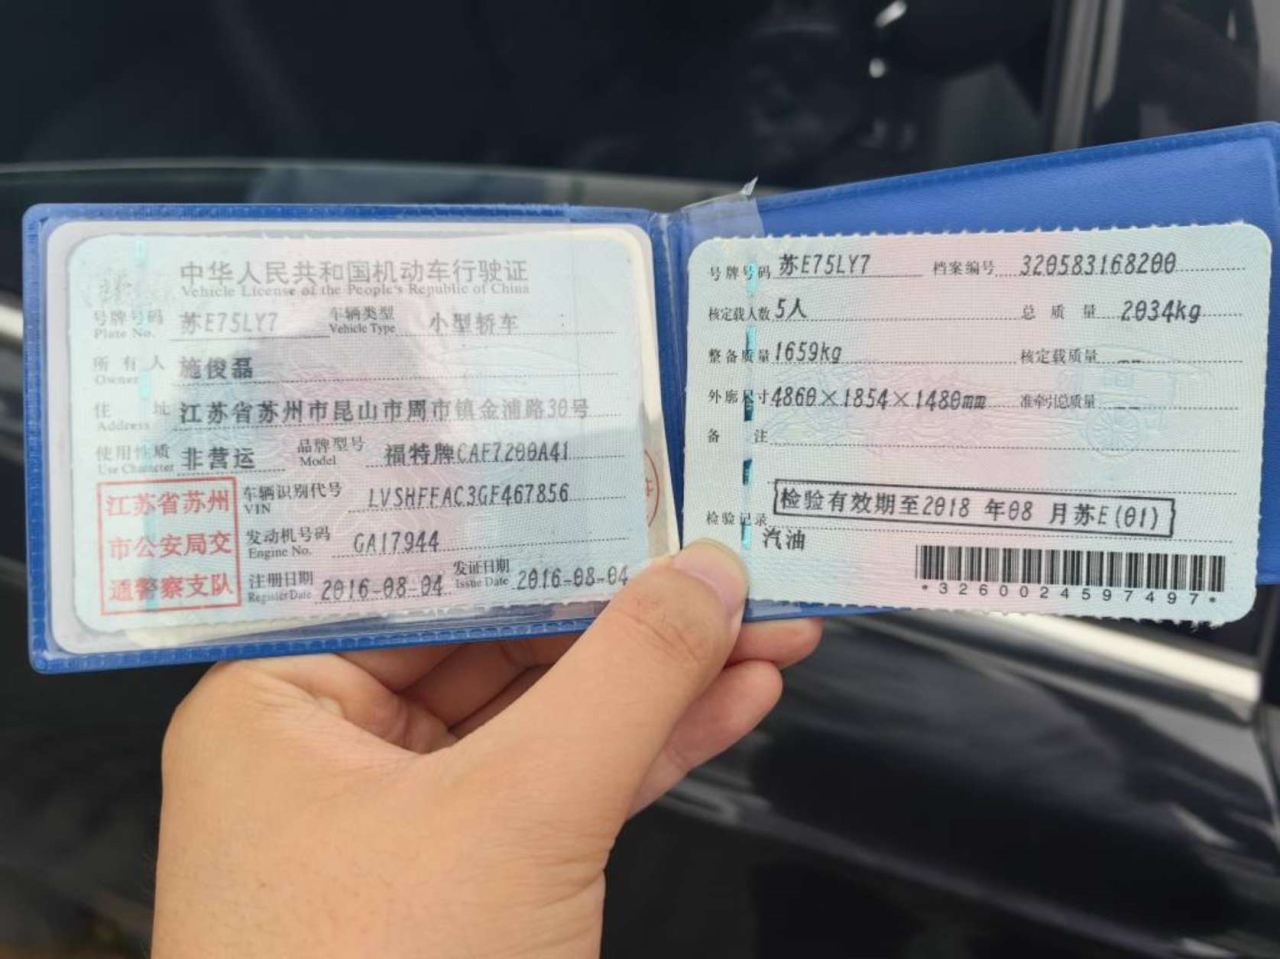 中华人民共和国机动车行驶证
Vehicle License of the People's Republic of China
号牌号码 苏E75LY7 车辆类型 小型轿车
Plate No. Vehicle Type
所有人 施俊磊
Owner
住址 江苏省苏州市昆山市周市镇金浦路30号
Address
使用性质 非营运 品牌型号 福特牌CAF7200A41
Use Character Model
江苏省苏州
市公安局交
通警察支队
车辆识别代号 LVSHFFAC3GF467856
VIN
发动机号码 GA17944
Engine No.
注册日期 2016-08-04 发证日期 2016-08-04
Register Date Issue Date
号牌号码 苏E75LY7 档案编号 320583168200
核定载人数 5人 总质量 2034kg
整备质量 1659kg 核定载质量 --
外廓尺寸 4860×1854×1480mm 准牵引总质量 --
备注
检验有效期至2018年08月苏E(01)
检验记录
汽油
*3260024597497*